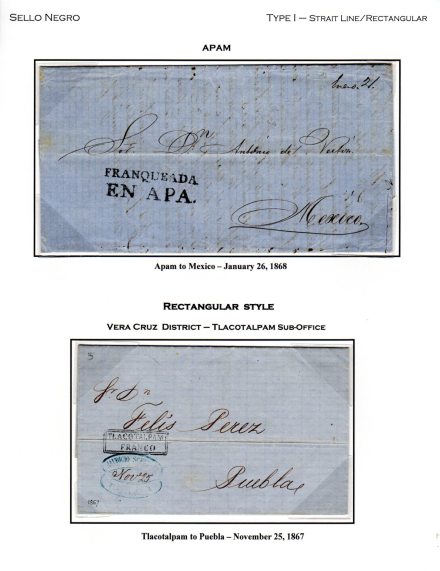 SELLO NEGRO
TYPE I – STRAIT LINE/RECTANGULAR
APAM
Enero 21.
Sor. Dn Antonio de
FRANQUEADA
EN APA.
Mexico.
Apam to Mexico – January 26, 1868
RECTANGULAR STYLE
VERA CRUZ DISTRICT – TLACOTALPAM SUB-OFFICE
3
Sr Dn
Felis Perez
TLACOTALPAM
FRANCO
Nove 25
Puebla
1867
Tlacotalpam to Puebla – November 25, 1867